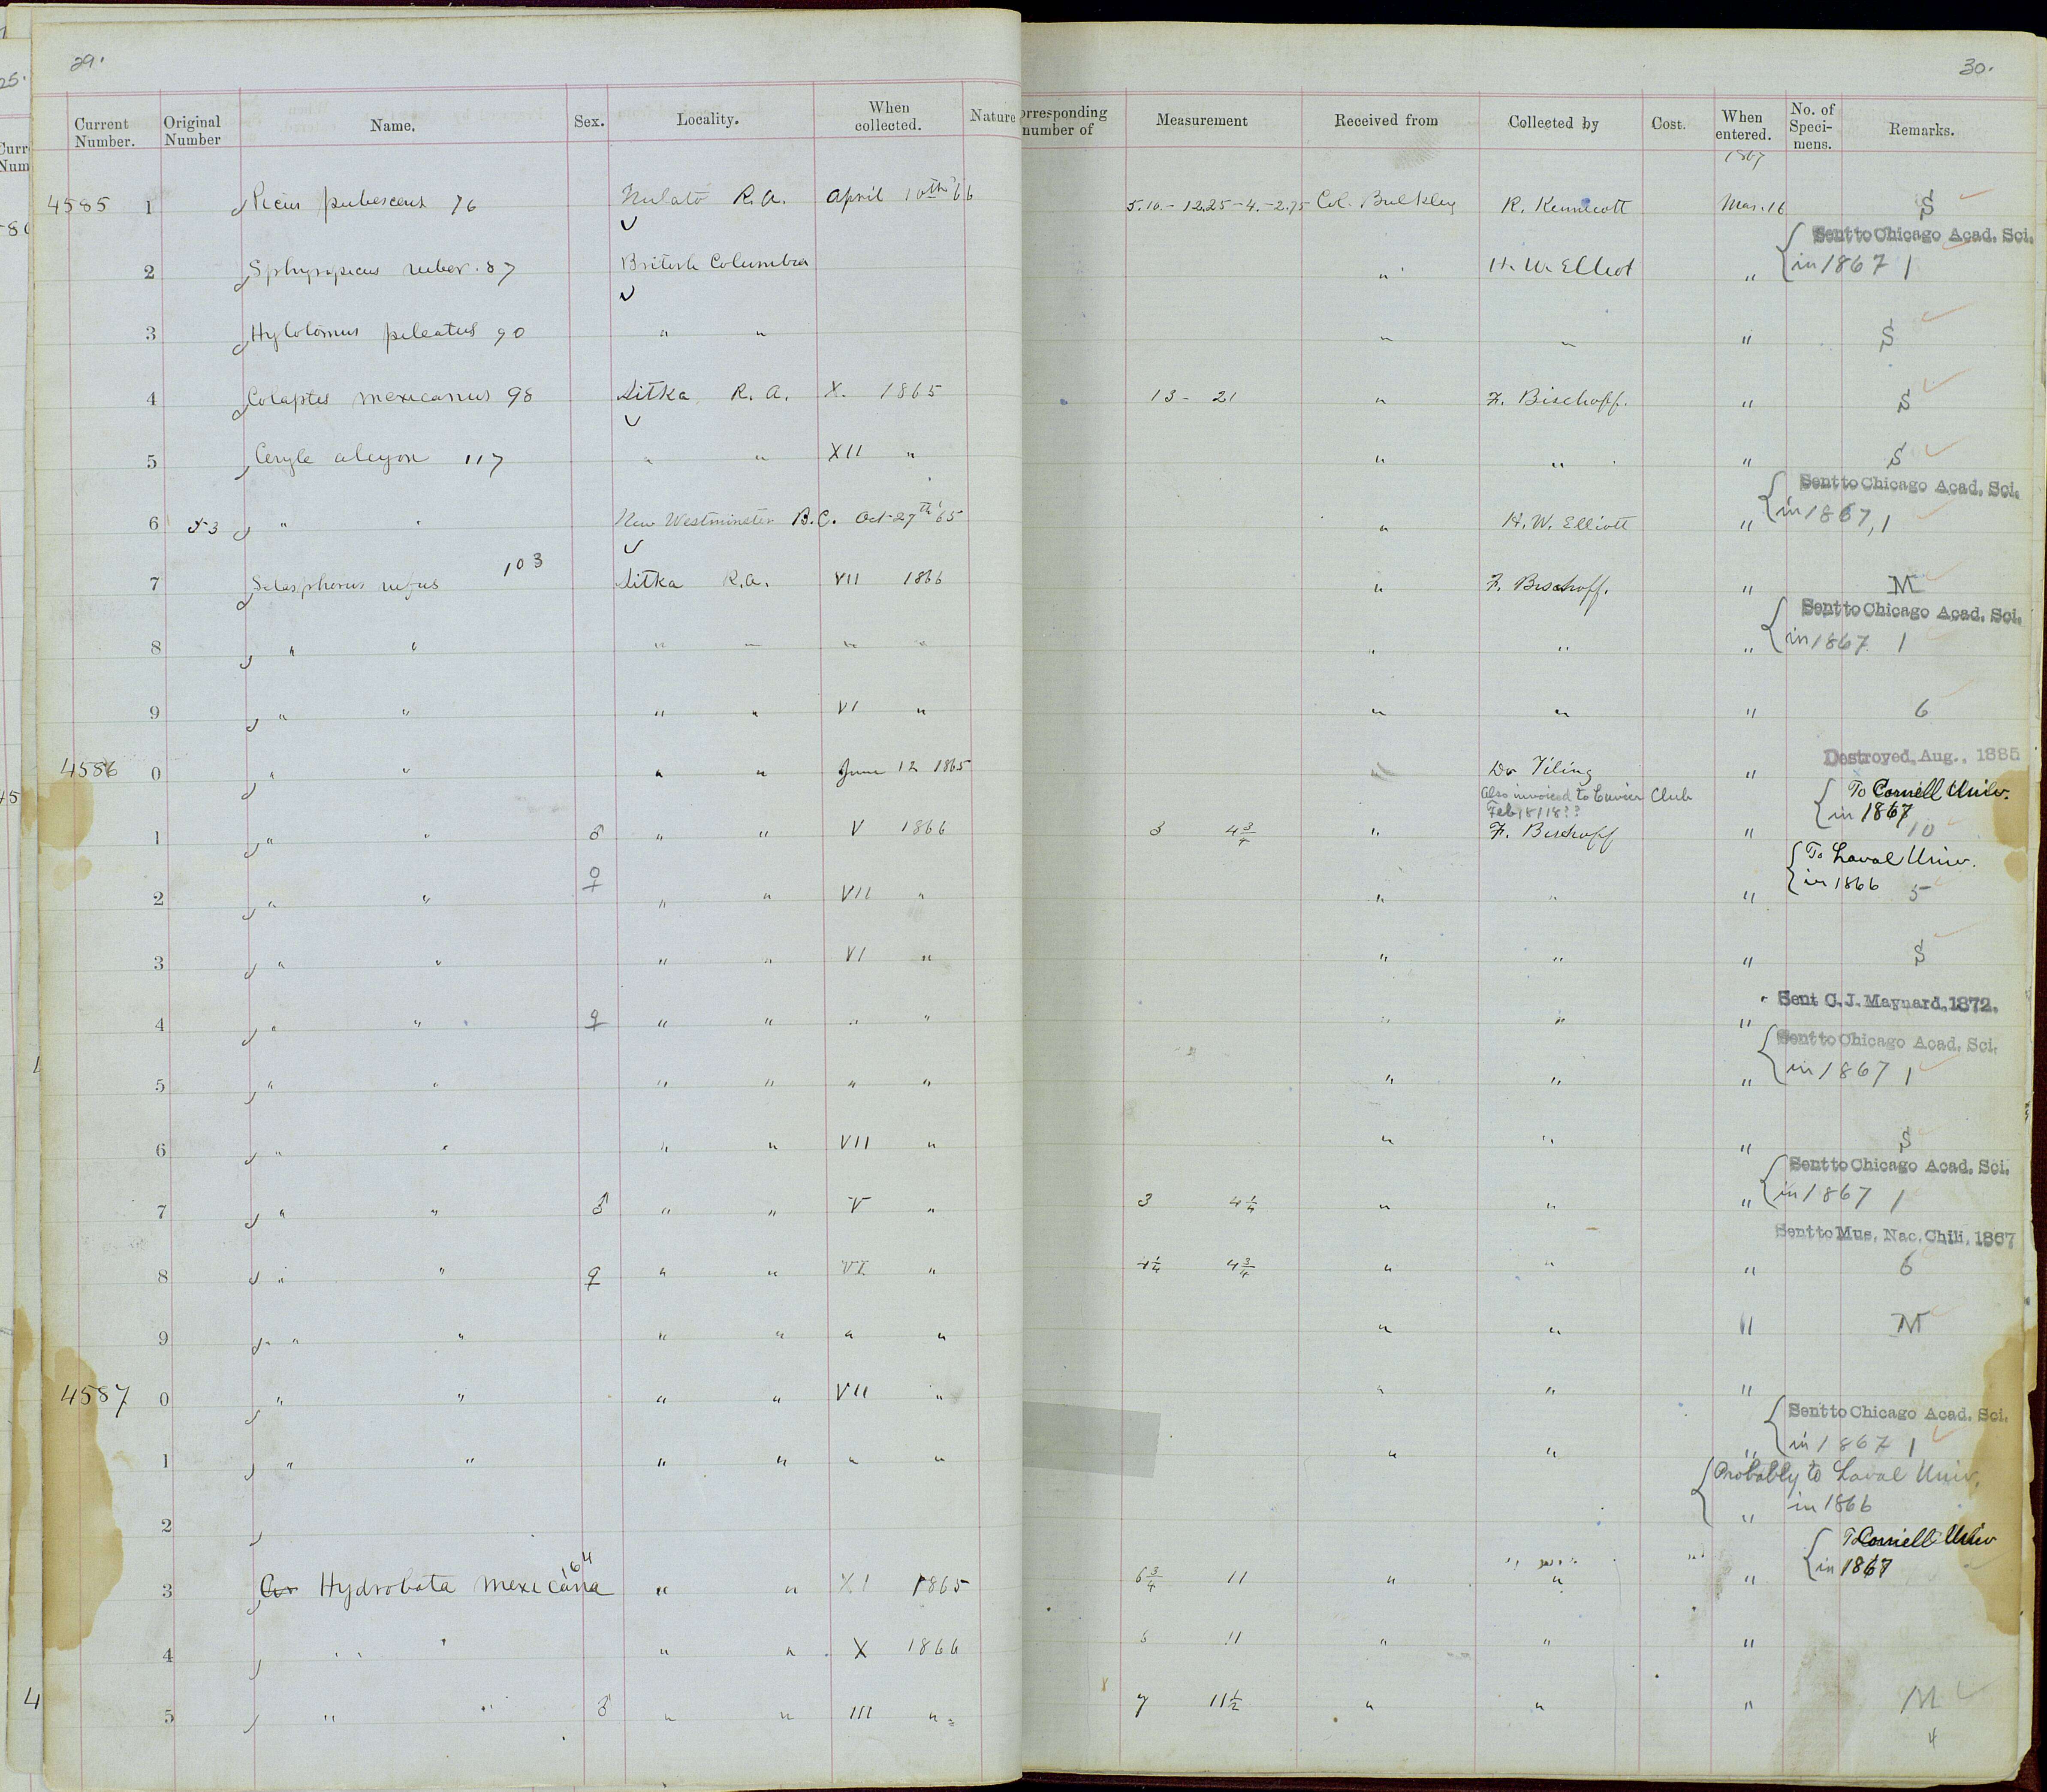 29.
30.
Current Number. Original Number Name. Sex. Locality. When collected. Nature
orresponding number of Measurement Received from Collected by Cost. When entered. No. of Speci-mens. Remarks.
1867
4585 1 Picus pubescens 76 Nulato R.A. April 10th '66 5.10.-12.25-4.-2.75 Col. Bulkley R. Kennicott Mar. 16 S
Sent to Chicago Acad. Sci.
2 Sphyropicus ruber. 87 British Columbia " H. W. Elliot " in 1867 1
3 Hylotomus pileatus 90 " " " " " S
4 Colaptes mexicanus 98 Sitka R.A. X. 1865 13 - 21 " F. Bischoff. " S
5 Ceryle alcyon 117 " " XII " " " " S
Sent to Chicago Acad. Sci.
6 53 " " New Westminster B.C. Oct 27th '65 " H. W. Elliott " in 1867, 1
7 Selasphorus rufus 103 Sitka R.A. VII 1866 " F. Bischoff. " M
Sent to Chicago Acad. Sci.
8 " " " " " " " " " in 1867 1
9 " " " " VI " " " " 6
Destroyed, Aug., 1885
4586 0 " " " " June 12 1865 " Dr Tiling "
Also invoiced to Cuvier Club
To Cornell Univ.
in 1867
1 " " ♂ " " V 1866 3 4 3/4 " F. Bischoff " 10
To Laval Univ.
in 1866
2 " " ♀ " " VII " " " " 5
3 " " " " VI " " " " S
Sent C. J. Maynard, 1872.
4 " " ♀ " " " " " " "
Sent to Chicago Acad. Sci.
5 " " " " " " " " " in 1867 1
6 " " " " VII " " " " S
Sent to Chicago Acad. Sci.
7 " " ♂ " " V " 3 4 1/4 " " " in 1867 1
Sent to Mus. Nac. Chili, 1867
8 " " ♀ " " VI " 4 1/4 4 3/4 " " " 6
9 " " " " " " " " " M
4587 0 " " " " VII " " " "
Sent to Chicago Acad. Sci.
1 " " " " " " " " " in 1867 1
Probably to Laval Univ.
2 " in 1866
To Cornell Univ
in 1867
3 Hydrobata mexicana 164 " " XI 1865 6 3/4 11 " " "
4 " " " " X 1866 6 11 " " "
5 " " ♂ " " III " 7 11 1/2 " " " M
4